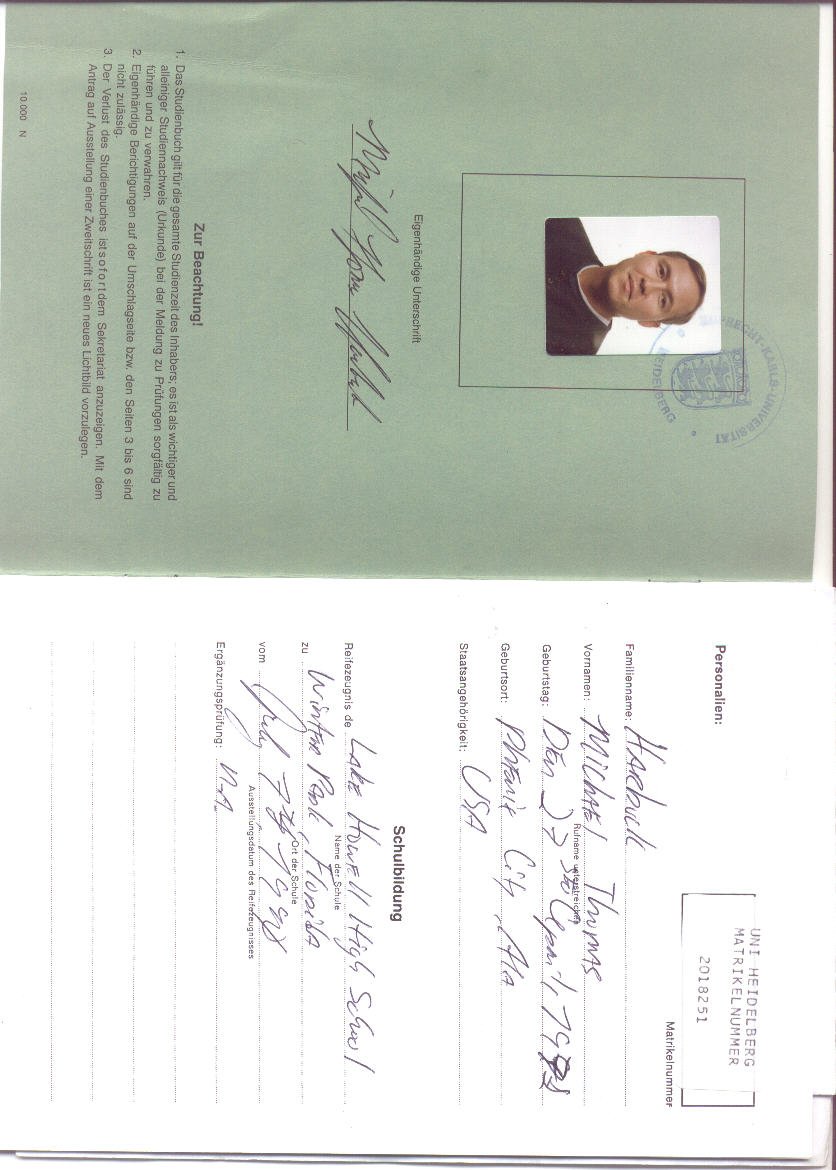 RUPRECHT-KARLS-UNIVERSITÄT
HEIDELBERG
Eigenhändige Unterschrift
Zur Beachtung!
1. Das Studienbuch gilt für die gesamte Studienzeit des Inhabers, es ist als wichtiger und
alleiniger Studiennachweis (Urkunde) bei der Meldung zu Prüfungen sorgfältig zu
führen und zu verwahren.
2. Eigenhändige Berichtigungen auf der Umschlagseite bzw. den Seiten 3 bis 6 sind
nicht zulässig.
3. Der Verlust des Studienbuches ist sofort dem Sekretariat anzuzeigen. Mit dem
Antrag auf Ausstellung einer Zweitschrift ist ein neues Lichtbild vorzulegen.
10 000 N
UNI HEIDELBERG
MATRIKELNUMMER
2018251
Matrikelnummer
Personalien:
Familienname: Harbuck
Vornamen: Michael Thomas
Rufname unterstreichen
Geburtstag: Den 27
Geburtsort: Phenix City, Ala
Staatsangehörigkeit: USA
Schulbildung
Reifezeugnis de Lake Howell High School
Name der Schule
zu Winter Park, Florida
Ort der Schule
vom
Ausstellungsdatum des Reifezeugnisses
Ergänzungsprüfung: N.A.